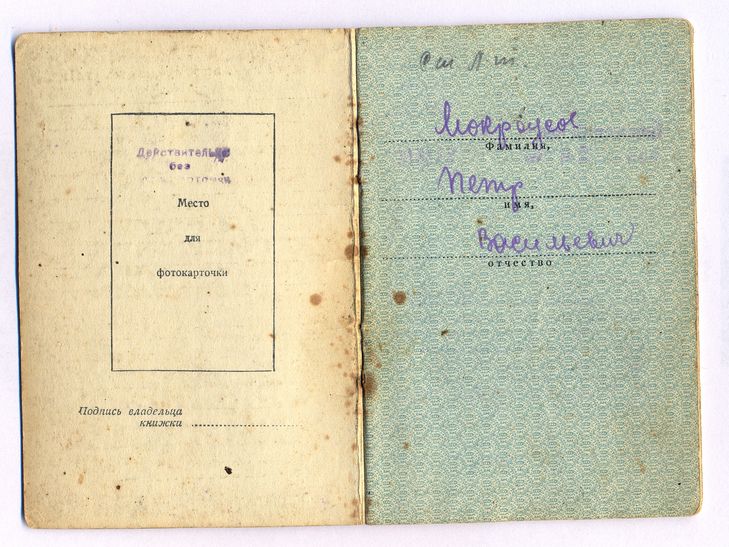 Действительно
без
фотокарточки
Место
для
фотокарточки
Подпись владельца
книжки
Мокроусов
Фамилия,
Петр
имя,
Васильевич
отчество